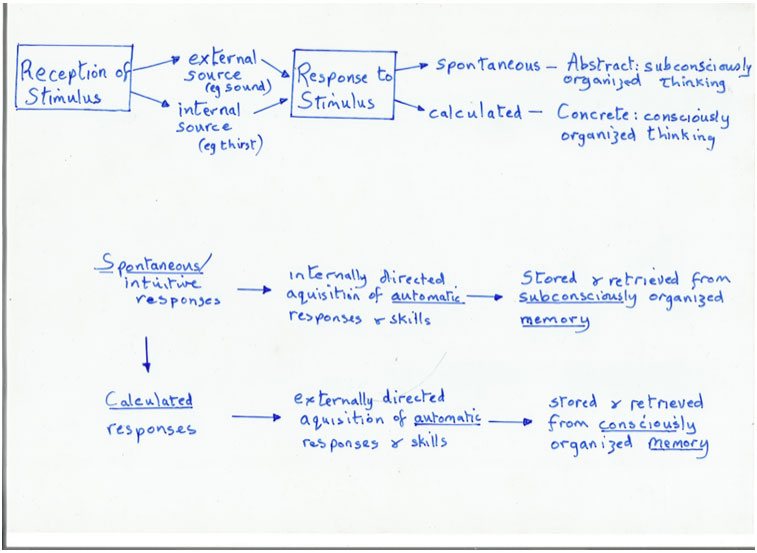 Reception of
Stimulus
external
source
(eg sound)
internal
source
(eg thirst)
Response to
Stimulus
spontaneous – Abstract: subconsciously
organized thinking
calculated – Concrete: consciously
organized thinking
Spontaneous/
intuitive
responses
internally directed
aquisition of automatic
responses & skills
Stored & retrieved from
subconsciously organized
memory
Calculated
responses
externally directed
aquisition of automatic
responses & skills
stored & retrieved
from consciously
organized memory